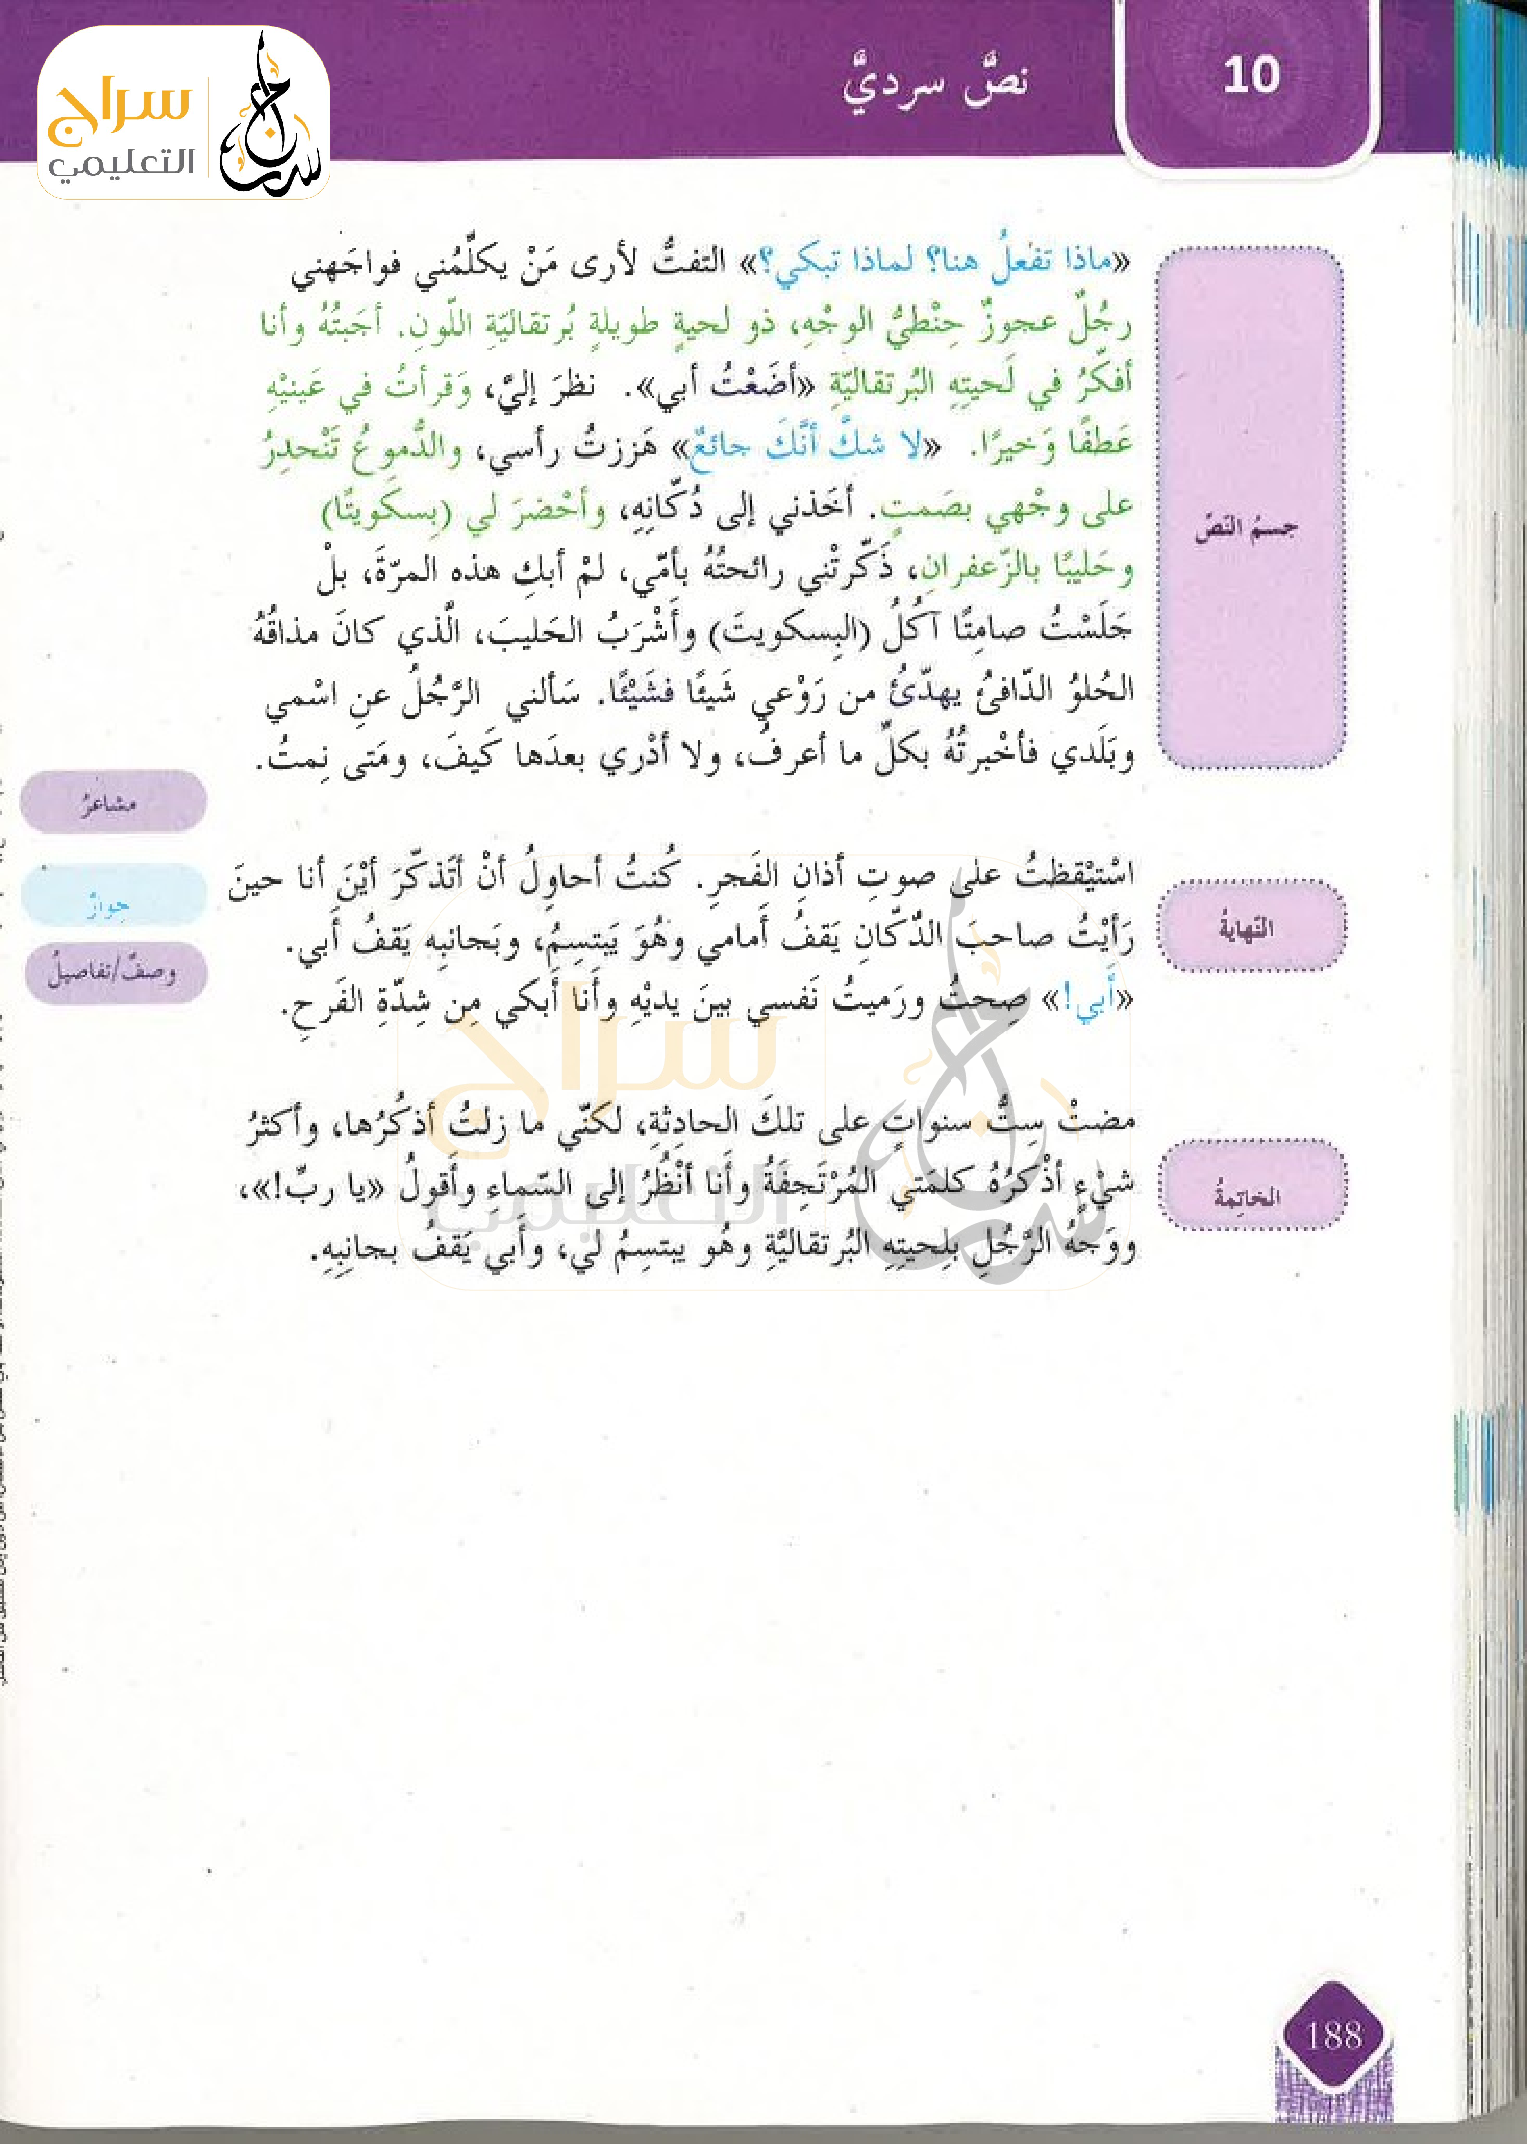 سراج
التعليمي
10
نصٌّ سرديٌّ
«ماذا تفعلُ هنا؟ لماذا تبكي؟» التفتُّ لأرى مَنْ يكلّمُني فواجَهني
رجُلٌ عجوزٌ حِنْطيُّ الوجْهِ، ذو لحيةٍ طويلةٍ بُرتقاليّةِ اللّونِ. أجَبتُهُ وأنا
أفكّرُ في لَحيتِهِ البُرتقاليّةِ «أضَعْتُ أبي». نظرَ إليَّ، وَقرأتُ في عَينيْهِ
عَطفًا وَخيرًا. «لا شكَّ أنَّكَ جائعٌ» هَززتُ رأسي، والدُّموعُ تَنْحدِرُ
على وجْهي بصَمتٍ. أخَذني إلى دُكّانِهِ، وأحْضرَ لي (بِسكَويتًا)
وحَليبًا بالزّعفرانِ، ذَكّرتْني رائحتُهُ بأمّي، لمْ أبكِ هذه المرّةَ، بلْ
جَلَسْتُ صامِتًا آكُلُ (البِسكويتَ) وأَشْرَبُ الحَليبَ، الَّذي كانَ مذاقُهُ
الحُلوُ الدّافئُ يهدّئُ من رَوْعي شَيئًا فشَيْئًا. سَألني الرَّجُلُ عنِ اسْمي
وبَلَدي فأخْبرتُهُ بكلِّ ما أعرفُ، ولا أدْري بعدَها كَيفَ، ومَتى نِمتُ.
جسمُ النّصّ
مشاعرُ
حِوارٌ
وصفٌ/تفاصيلُ
اسْتيْقظتُ على صوتِ أذانِ الفَجرِ. كُنتُ أحاوِلُ أنْ أتَذكّرَ أيْنَ أنا حينَ
رَأيْتُ صاحبَ الدّكّانِ يَقفُ أمامي وهُوَ يَبتسِمُ، وبَجانبِه يَقفُ أَبي.
«أَبي!» صِحتُ ورَميتُ نَفسي بينَ يديْهِ وأَنا أَبكي مِن شِدّةِ الفَرحِ.
النّهايةُ
مضتْ سِتُّ سنواتٍ على تلكَ الحادِثةِ، لكنّي ما زلتُ أذكُرُها، وأكثرُ
شيْءٍ أذْكرُهُ كلمَتي المُرْتَجِفَةُ وأَنا أنْظُرُ إلى السّماءِ وأَقولُ «يا ربِّ!»،
ووَجْهُ الرَّجُلِ بِلِحيتِهِ البُرتقاليَّةِ وهُو يبتسِمُ لي، وأَبي يَقفُ بجانِبِهِ.
الخاتِمةُ
188